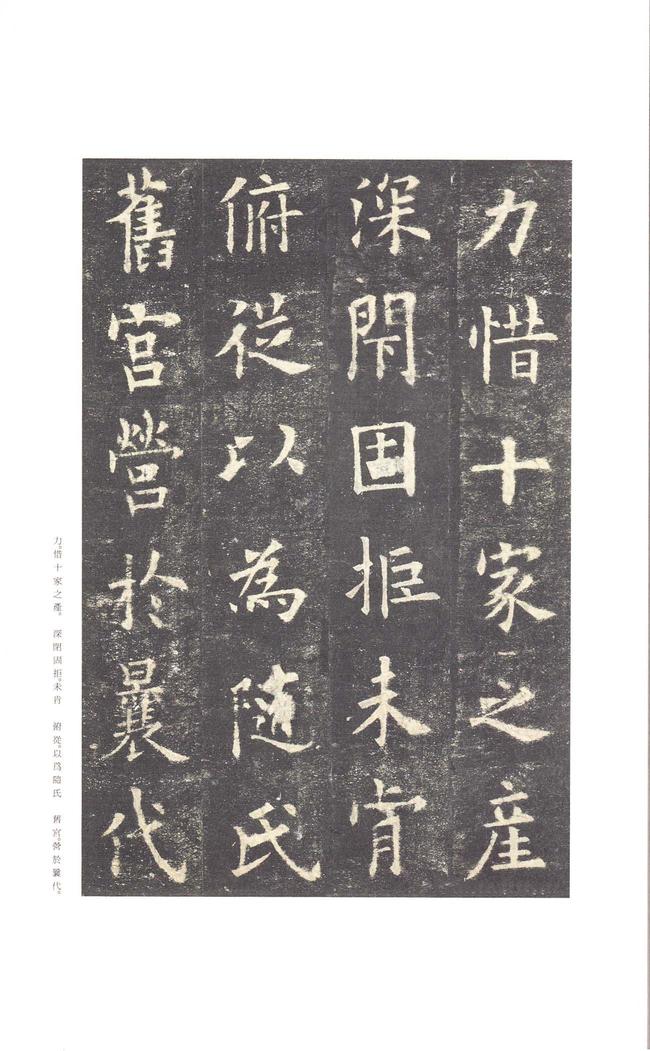 力惜十家之産
深閇固拒未肯
俯從以為随氏
舊宮營於曩代
力。惜十家之產。 深閉固拒。未肯 俯從。以爲隨氏 舊宮。營於曩代。